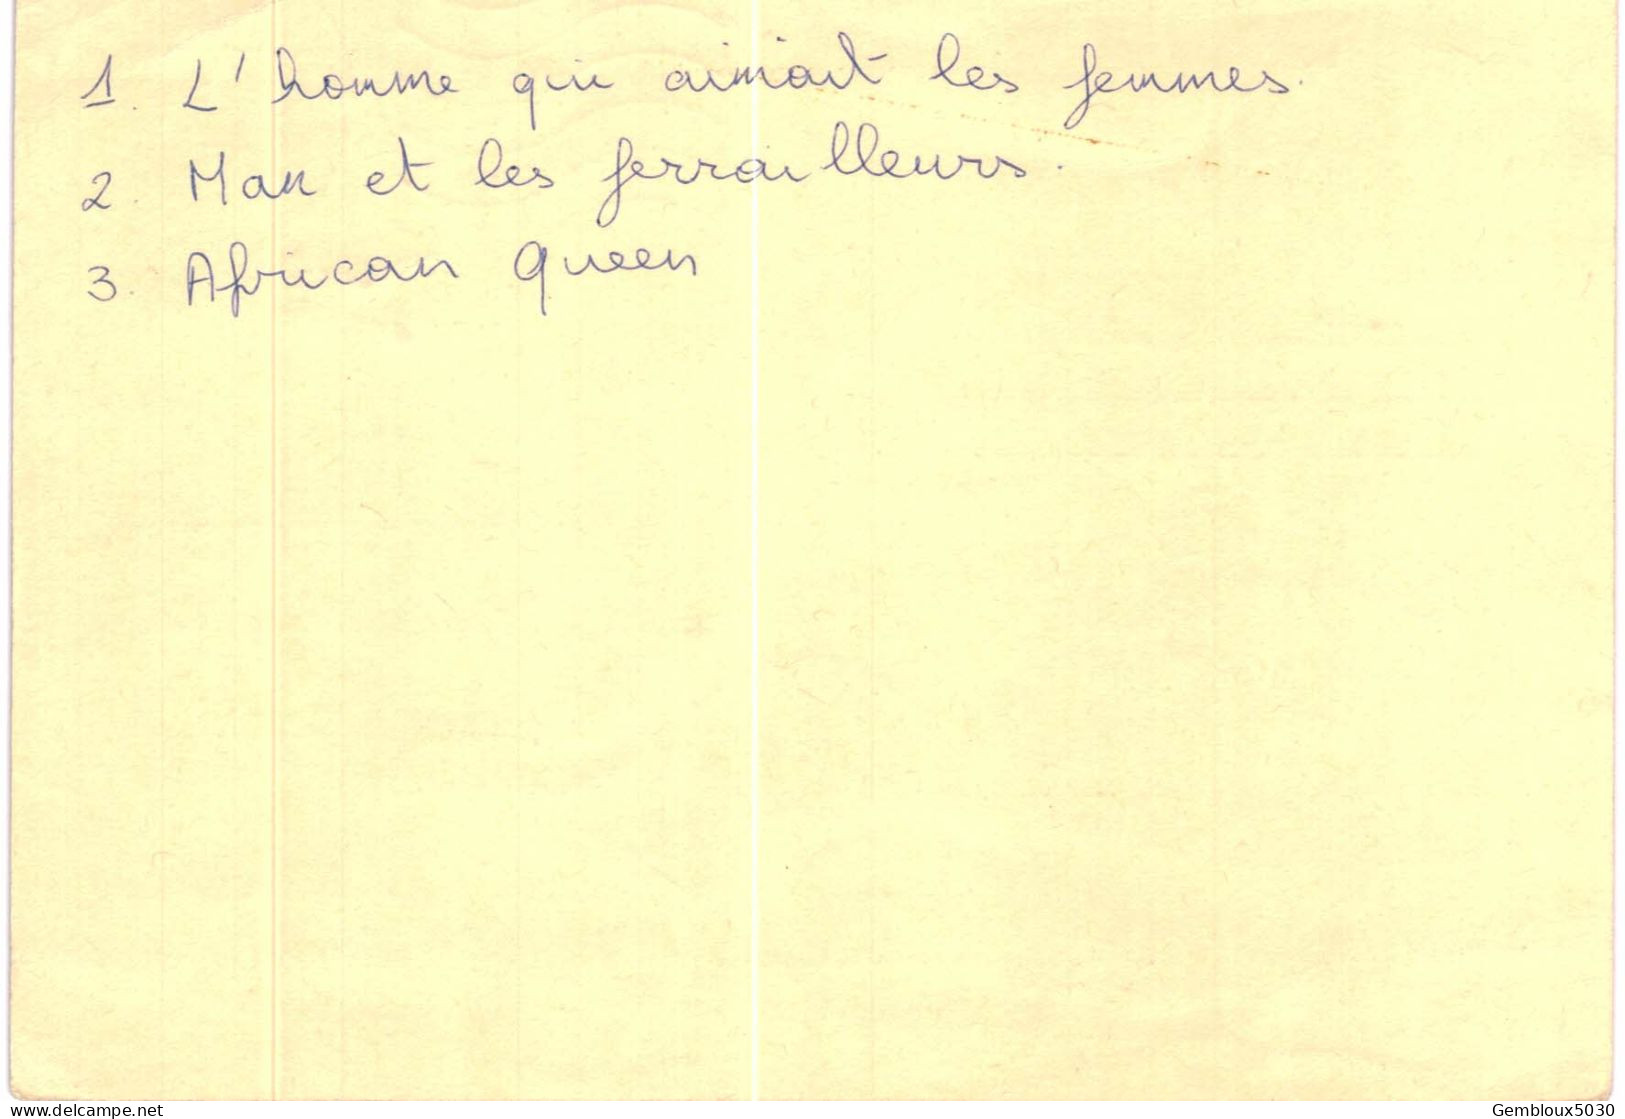 1. L'homme qui aimait les femmes.
2. Max et les ferrailleurs.
3. African Queen
www.delcampe.net
Gembloux5030